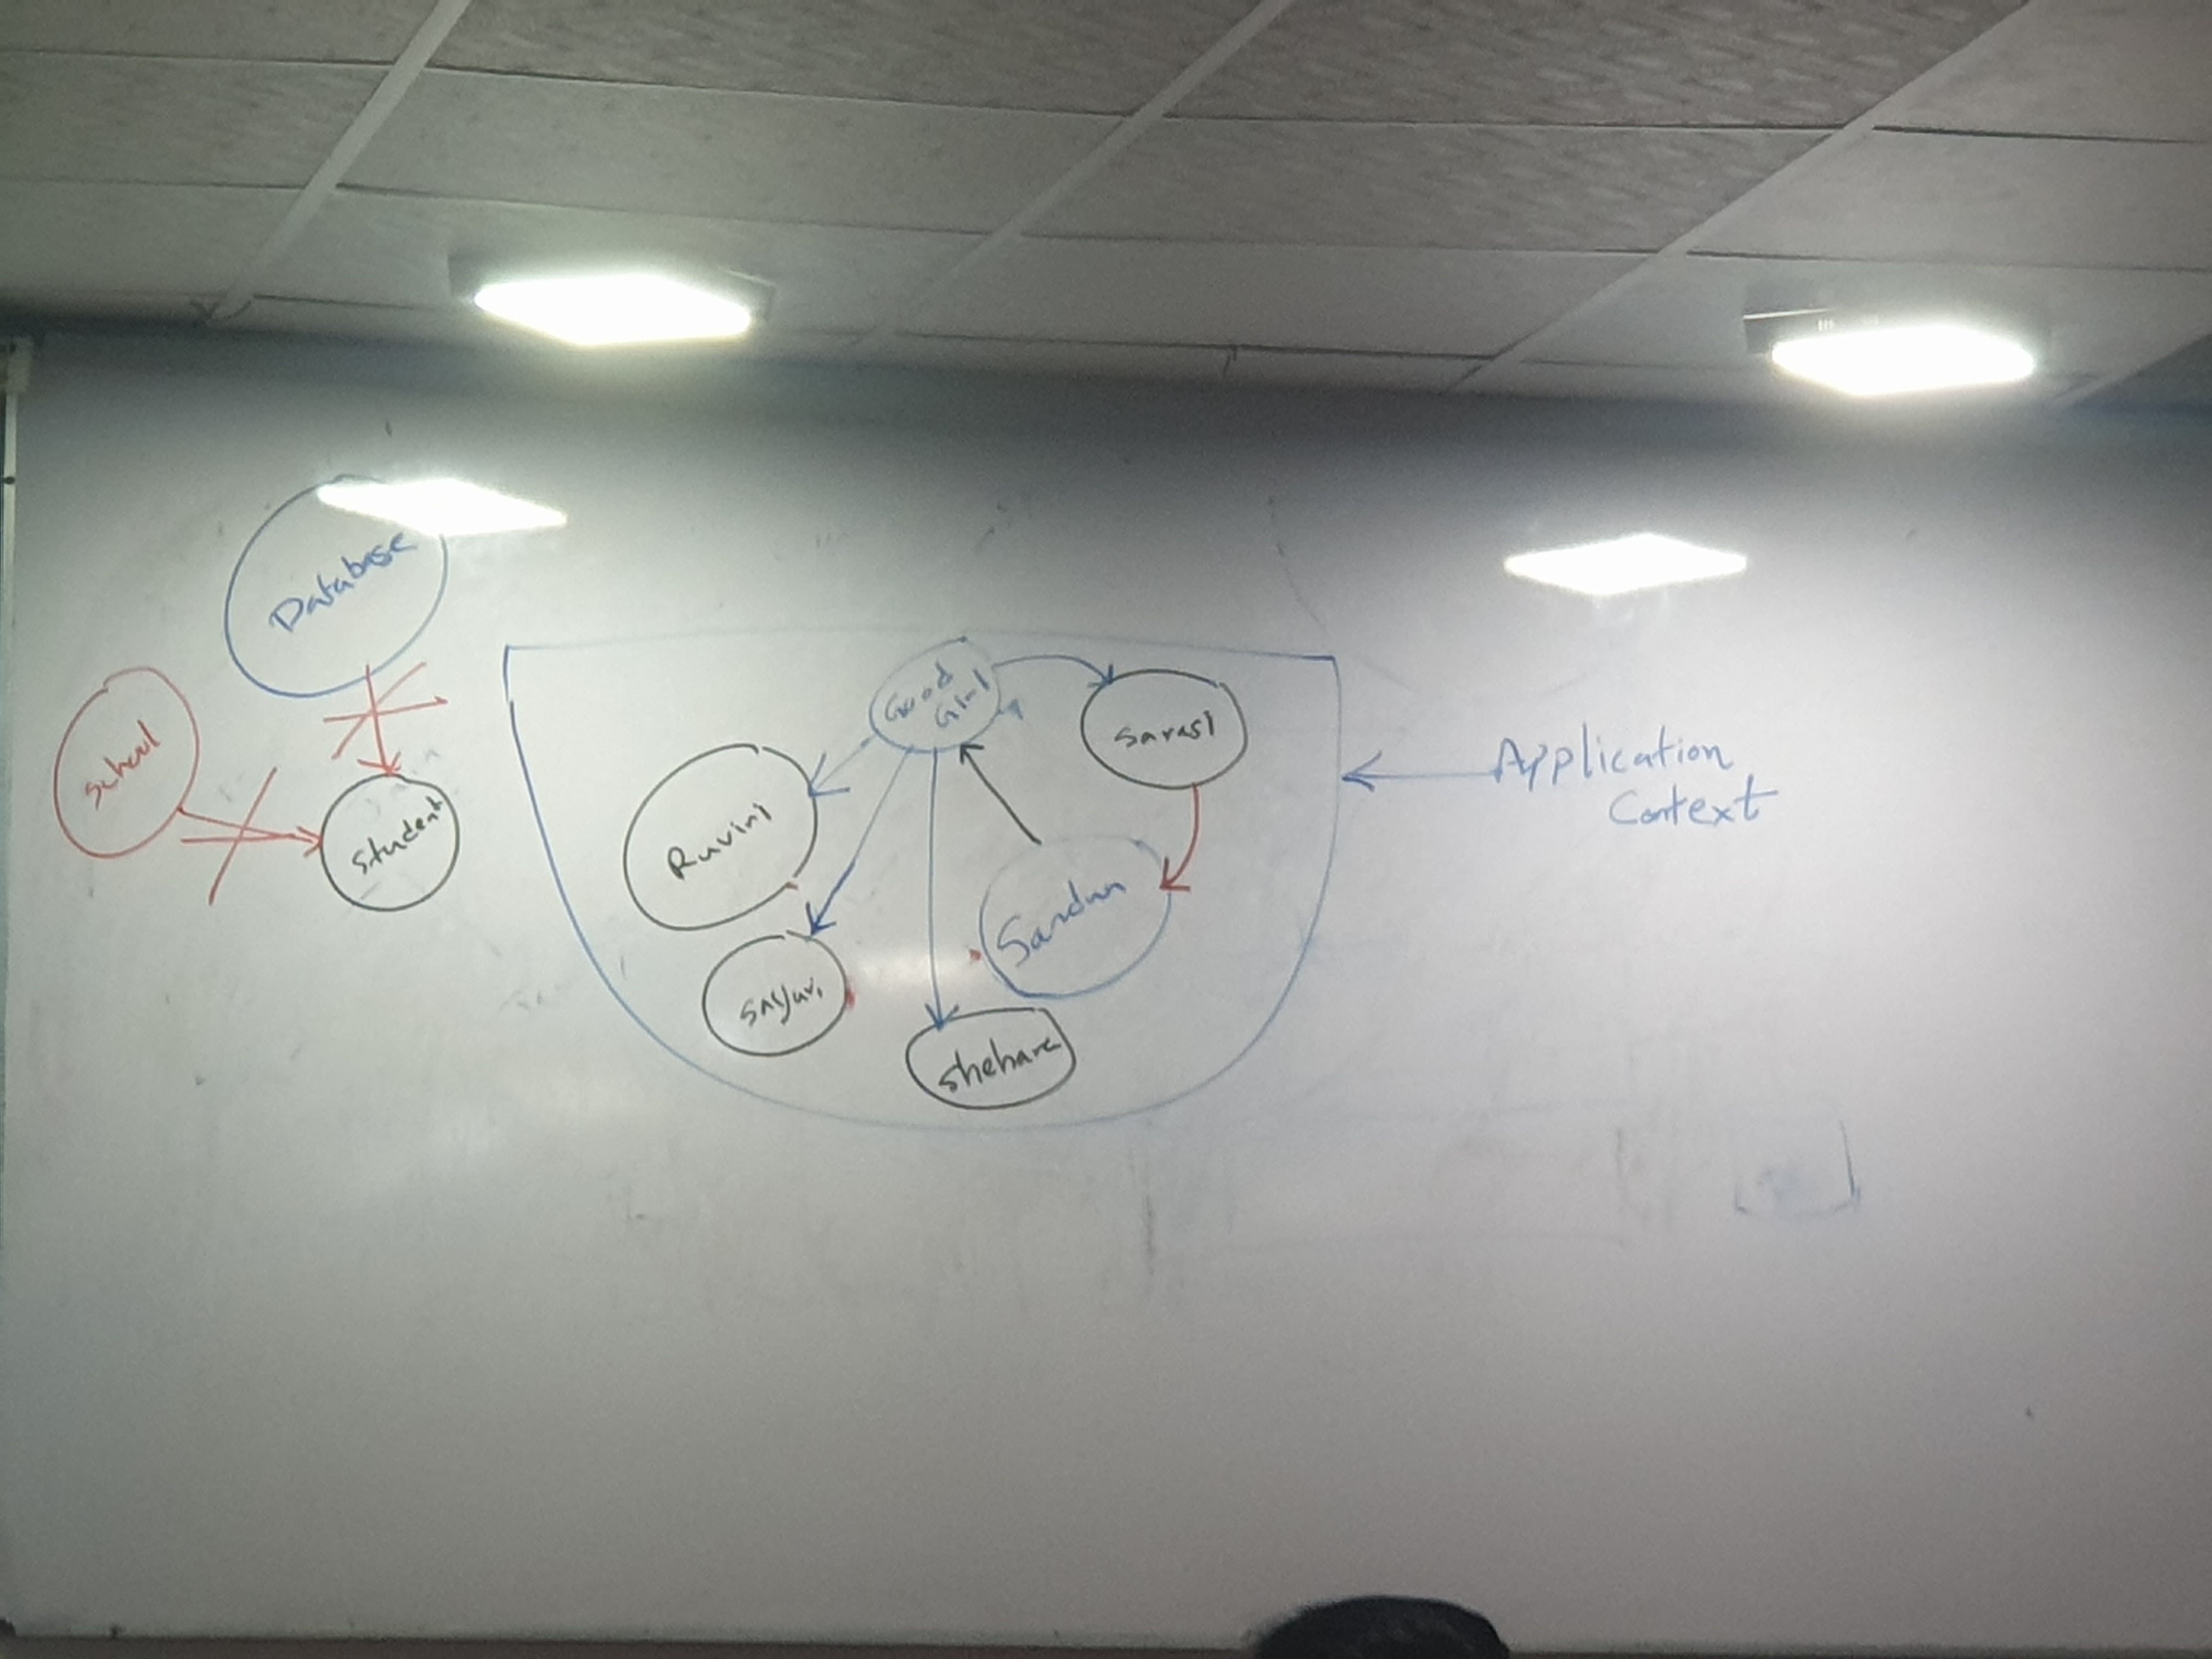 Database
School
Student
Good
Girl
Sarasi
Ruvini
Sandun
Sayuri
Shehara
Application
Context